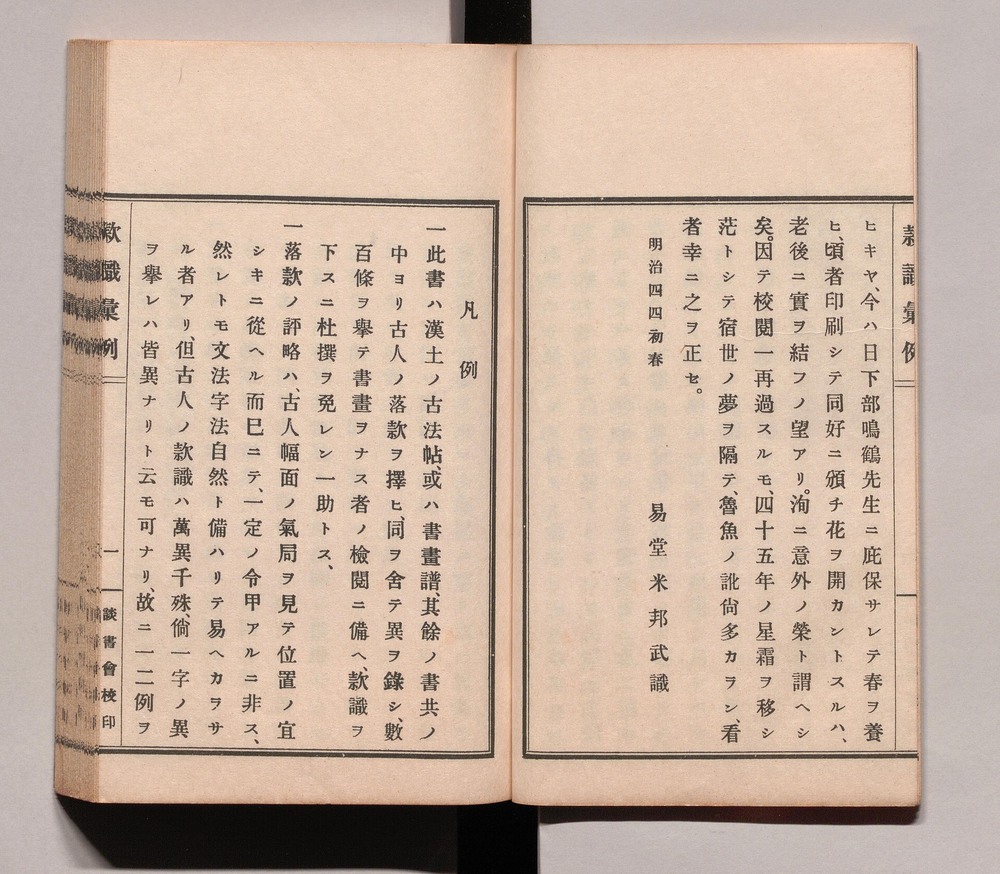 ヒキヤ、今ハ日下部鳴鶴先生ニ庇保サレテ春ヲ養
ヒ、頃者印刷シテ同好ニ頒チ花ヲ開カントスルハ、
老後ニ實ヲ結フノ望アリ。洵ニ意外ノ榮ト謂ヘシ
矣。因テ校閱一再過スルモ、四十五年ノ星霜ヲ移シ
茫トシテ宿世ノ夢ヲ隔テ、魯魚ノ訛尙多カラン、看
者幸ニ之ヲ正セ。
明治四四初春
易堂米邦武識
凡例
一此書ハ漢土ノ古法帖、或ハ書畫譜、其餘ノ書共ノ
中ヨリ古人ノ落款ヲ擇ヒ、同ヲ舍テ異ヲ錄シ、數
百條ヲ擧テ書畫ヲナス者ノ檢閱ニ備ヘ、款識ヲ
下スニ杜撰ヲ免レン一助トス、
一落款ノ評略ハ、古人幅面ノ氣局ヲ見テ位置ノ宜
シキニ從ヘル而巳ニテ、一定ノ令甲アルニ非ス、
然レトモ文法字法自然ト備ハリテ易ヘカラサ
ル者アリ、但古人ノ款識ハ萬異千殊、倘一字ノ異
ヲ擧レハ皆異ナリト云モ可ナリ、故ニ一二例ヲ
款識彙例
一
談書會校印